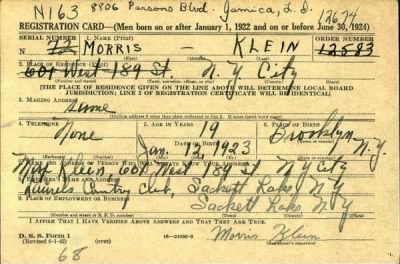 N163 8806 Parsons Blvd. Jamica, L.I.
12674
REGISTRATION CARD—(Men born on or after January 1, 1922 and on or before June 30, 1924)
SERIAL NUMBER 1. NAME (Print) ORDER NUMBER
N 72 MORRIS — KLEIN 12583
2. PLACE OF RESIDENCE
601 West 189 St. N.Y. City
[THE PLACE OF RESIDENCE GIVEN ON THE LINE ABOVE WILL DETERMINE LOCAL BOARD
JURISDICTION; LINE 2 OF REGISTRATION CERTIFICATE WILL BE IDENTICAL]
3. MAILING ADDRESS
Same
4. TELEPHONE 5. AGE IN YEARS 6. PLACE OF BIRTH
None 19 Brooklyn
DATE OF BIRTH
Jan. 1923 N.Y.
7. NAME AND ADDRESS OF PERSON WHO WILL ALWAYS KNOW YOUR ADDRESS
Max Klein, 601 West 189 St N.Y City
8. EMPLOYER'S NAME AND ADDRESS
Laurels Contry Club, Sackett Lake, N Y
9. PLACE OF EMPLOYMENT OR BUSINESS
Sackett Lake N Y
I AFFIRM THAT I HAVE VERIFIED ABOVE ANSWERS AND THAT THEY ARE TRUE.
D. S. S. Form 1
(Revised 6-1-42)
Morris Klein
(Registrant's signature)
68